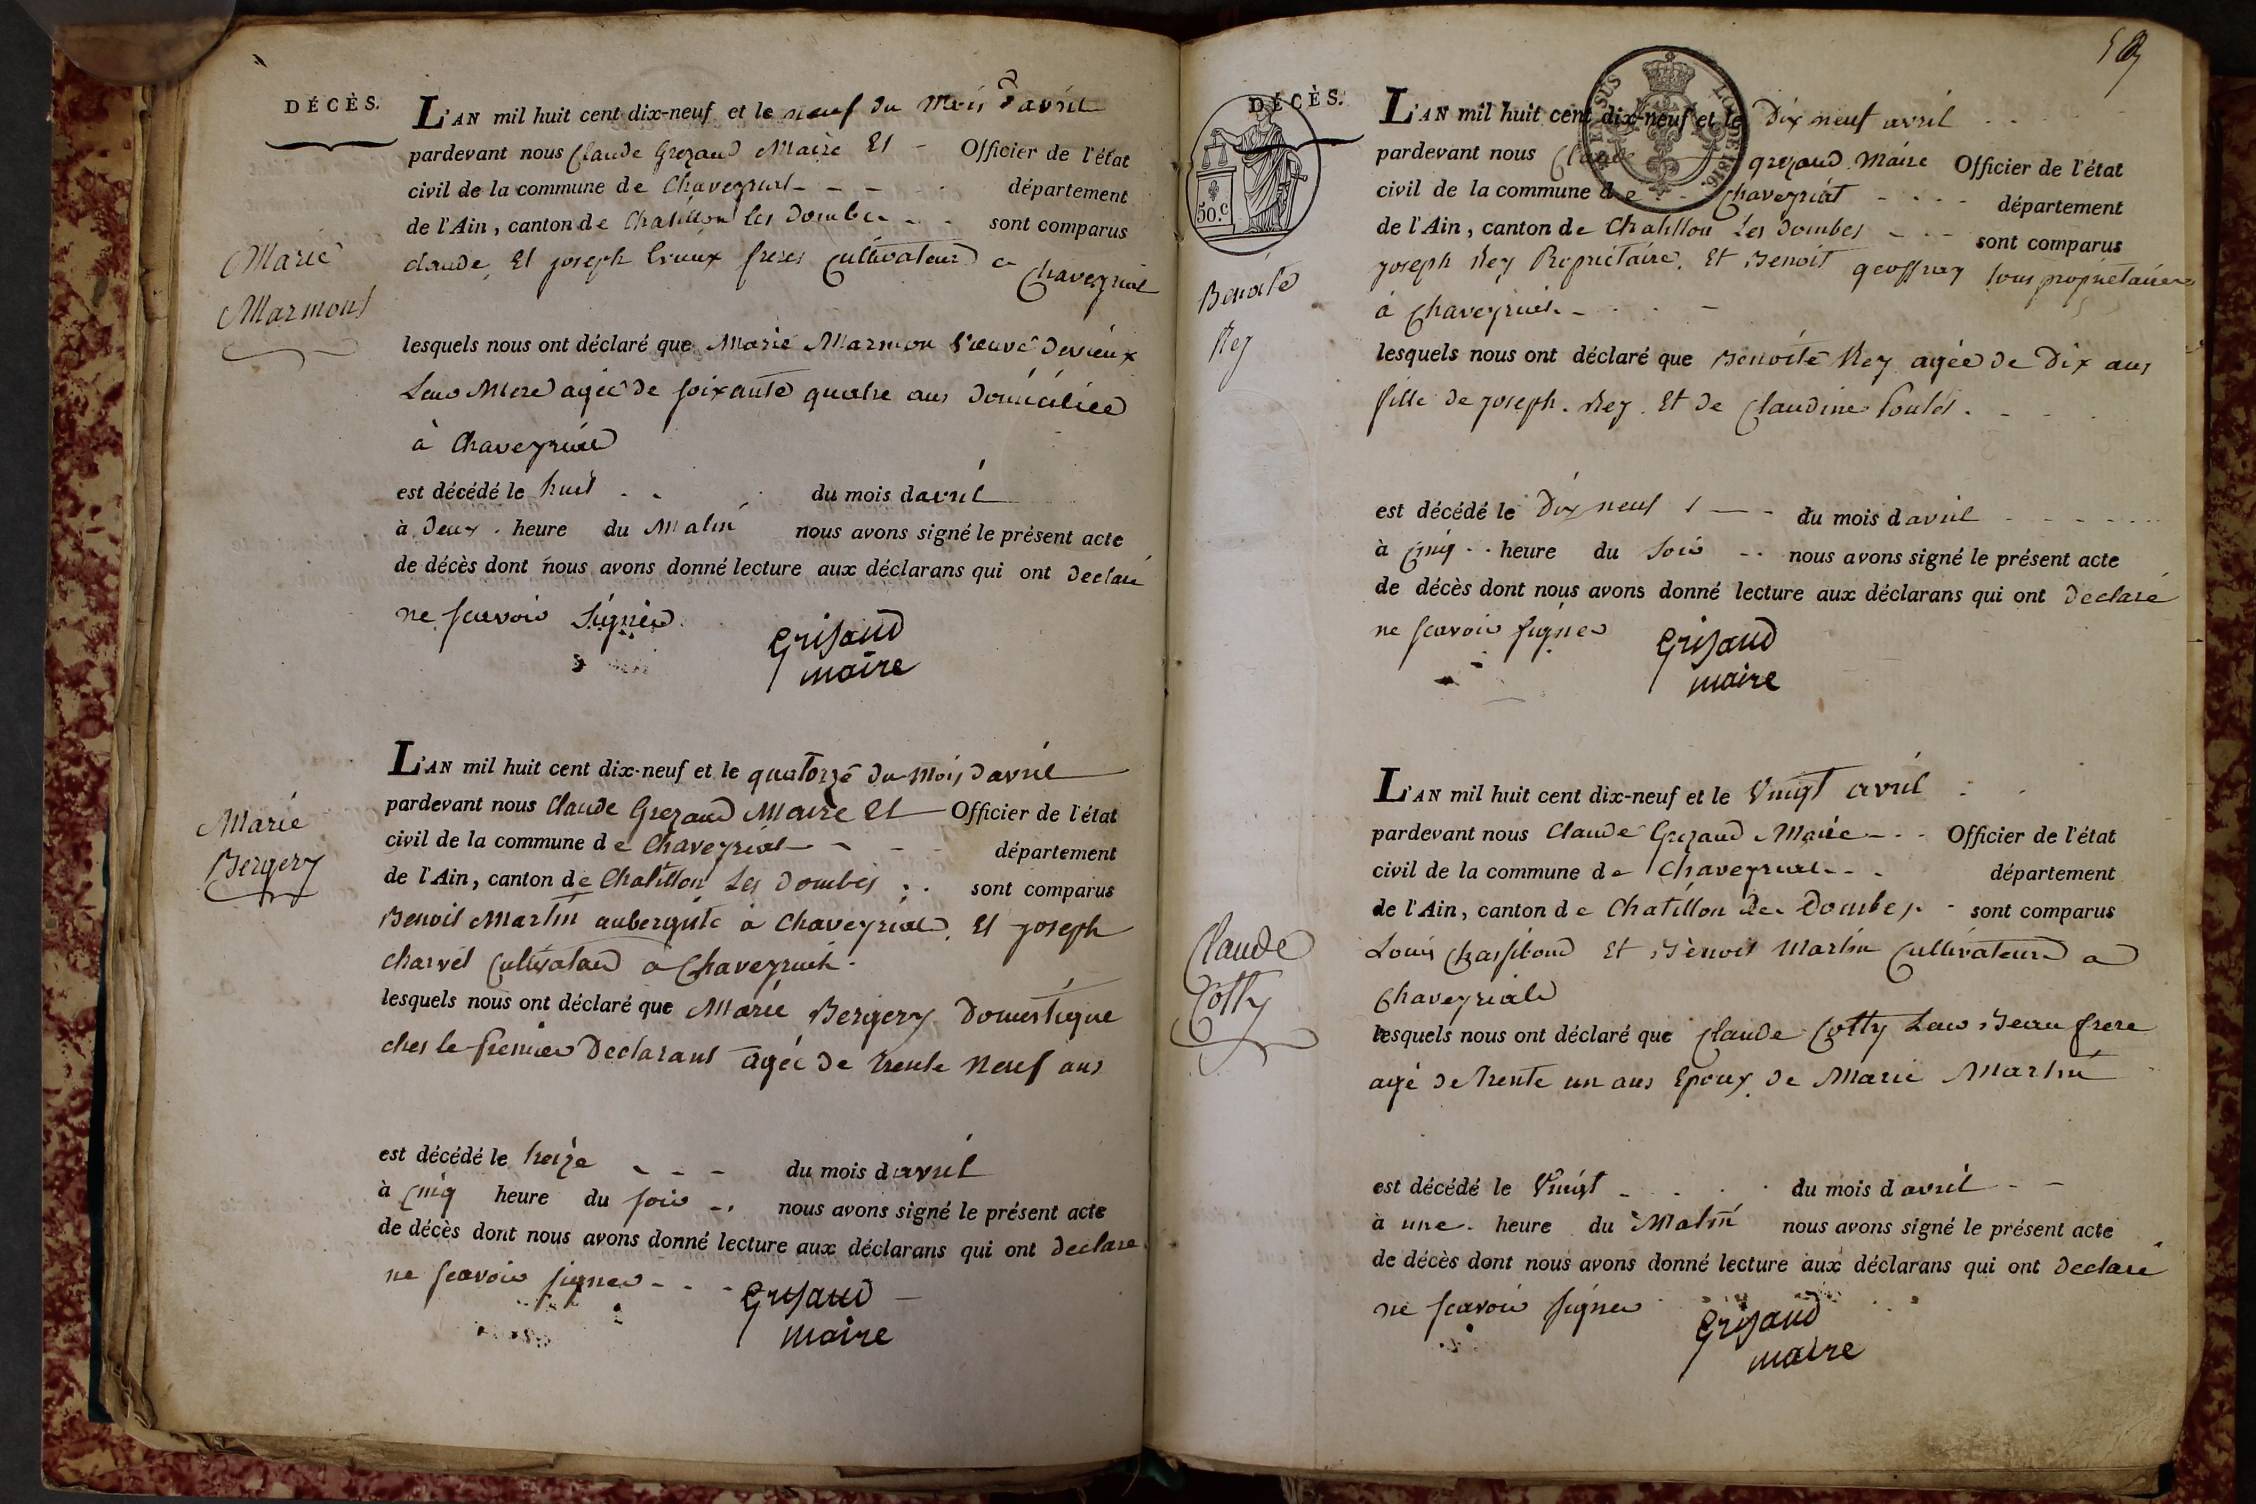 DÉCÈS.
L'AN mil huit cent dix-neuf et le neuf du mois d'avril
pardevant nous Claude Grezaud Maire Et - Officier de l'état
civil de la commune de Chaveyriat - - - département
de l'Ain, canton de Chatillon les Dombes - - sont comparus
Marie
Marmont
claude Et joseph freres cultivateurs a Chaveyriat
lesquels nous ont déclaré que Marie Marmon veuve
Leur Mere agée de soixante quatre ans domiciliée
à Chaveyriat
est décédé le huit . . du mois d avril
à deux . heure du Matin nous avons signé le présent acte
de décès dont nous avons donné lecture aux déclarans qui ont declaré
ne scavoir signer
Grisaud
maire
L'AN mil huit cent dix-neuf et le quatorze du mois d avril
pardevant nous Claude Grezaud Maire Et Officier de l'état
civil de la commune de Chaveyriat - - - département
de l'Ain, canton de Chatillon Les Dombes . . sont comparus
Marie
Bergery
Benoit Martin aubergiste à Chaveyriat Et joseph
charvet cultivateur a Chaveyriat.
lesquels nous ont déclaré que Marie Bergery Domestique
ches le premier Declarant agée de trente neuf ans
est décédé le treize - - - du mois d avril
à cinq heure du soir - . nous avons signé le présent acte
de décès dont nous avons donné lecture aux déclarans qui ont declaré
ne scavoir signer - - -
Grisaud
maire
DÉCÈS.
50.c
L'AN mil huit cent dix-neuf et le Dix neuf avril . . .
pardevant nous Claude grezaud Maire Officier de l'état
civil de la commune de Chaveyriat - - - département
de l'Ain, canton de Chatillon Les Dombes - - - sont comparus
Benoite
Rey
joseph Rey Proprietaire. Et Benoit geoffray tous proprietaires
à Chaveyriat - . . -
lesquels nous ont déclaré que Benoite Rey agée de Dix ans
fille de joseph . Rey . Et de Claudine . - -
est décédé le Dix neuf - - du mois d avril - - - -
à cinq . . heure du soir - - nous avons signé le présent acte
de décès dont nous avons donné lecture aux déclarans qui ont declaré
ne scavoir signer
Grisaud
maire
L'AN mil huit cent dix-neuf et le Vingt avril
pardevant nous Claude Grezaud Maire - - Officier de l'état
civil de la commune de Chaveyriat - - département
de l'Ain, canton de Chatillon Les Dombes - sont comparus
Claude
Cotty
Louis Et Benoit Martin Cultivateurs a
Chaveyriat
lesquels nous ont déclaré que Claude Cotty Leur Beau frere
agé de trente un ans Epoux de Marie Martin
est décédé le Vingt - . . . du mois d avril - -
à une . heure du Matin nous avons signé le présent acte
de décès dont nous avons donné lecture aux déclarans qui ont declaré
ne scavoir signer
Grisaud
maire